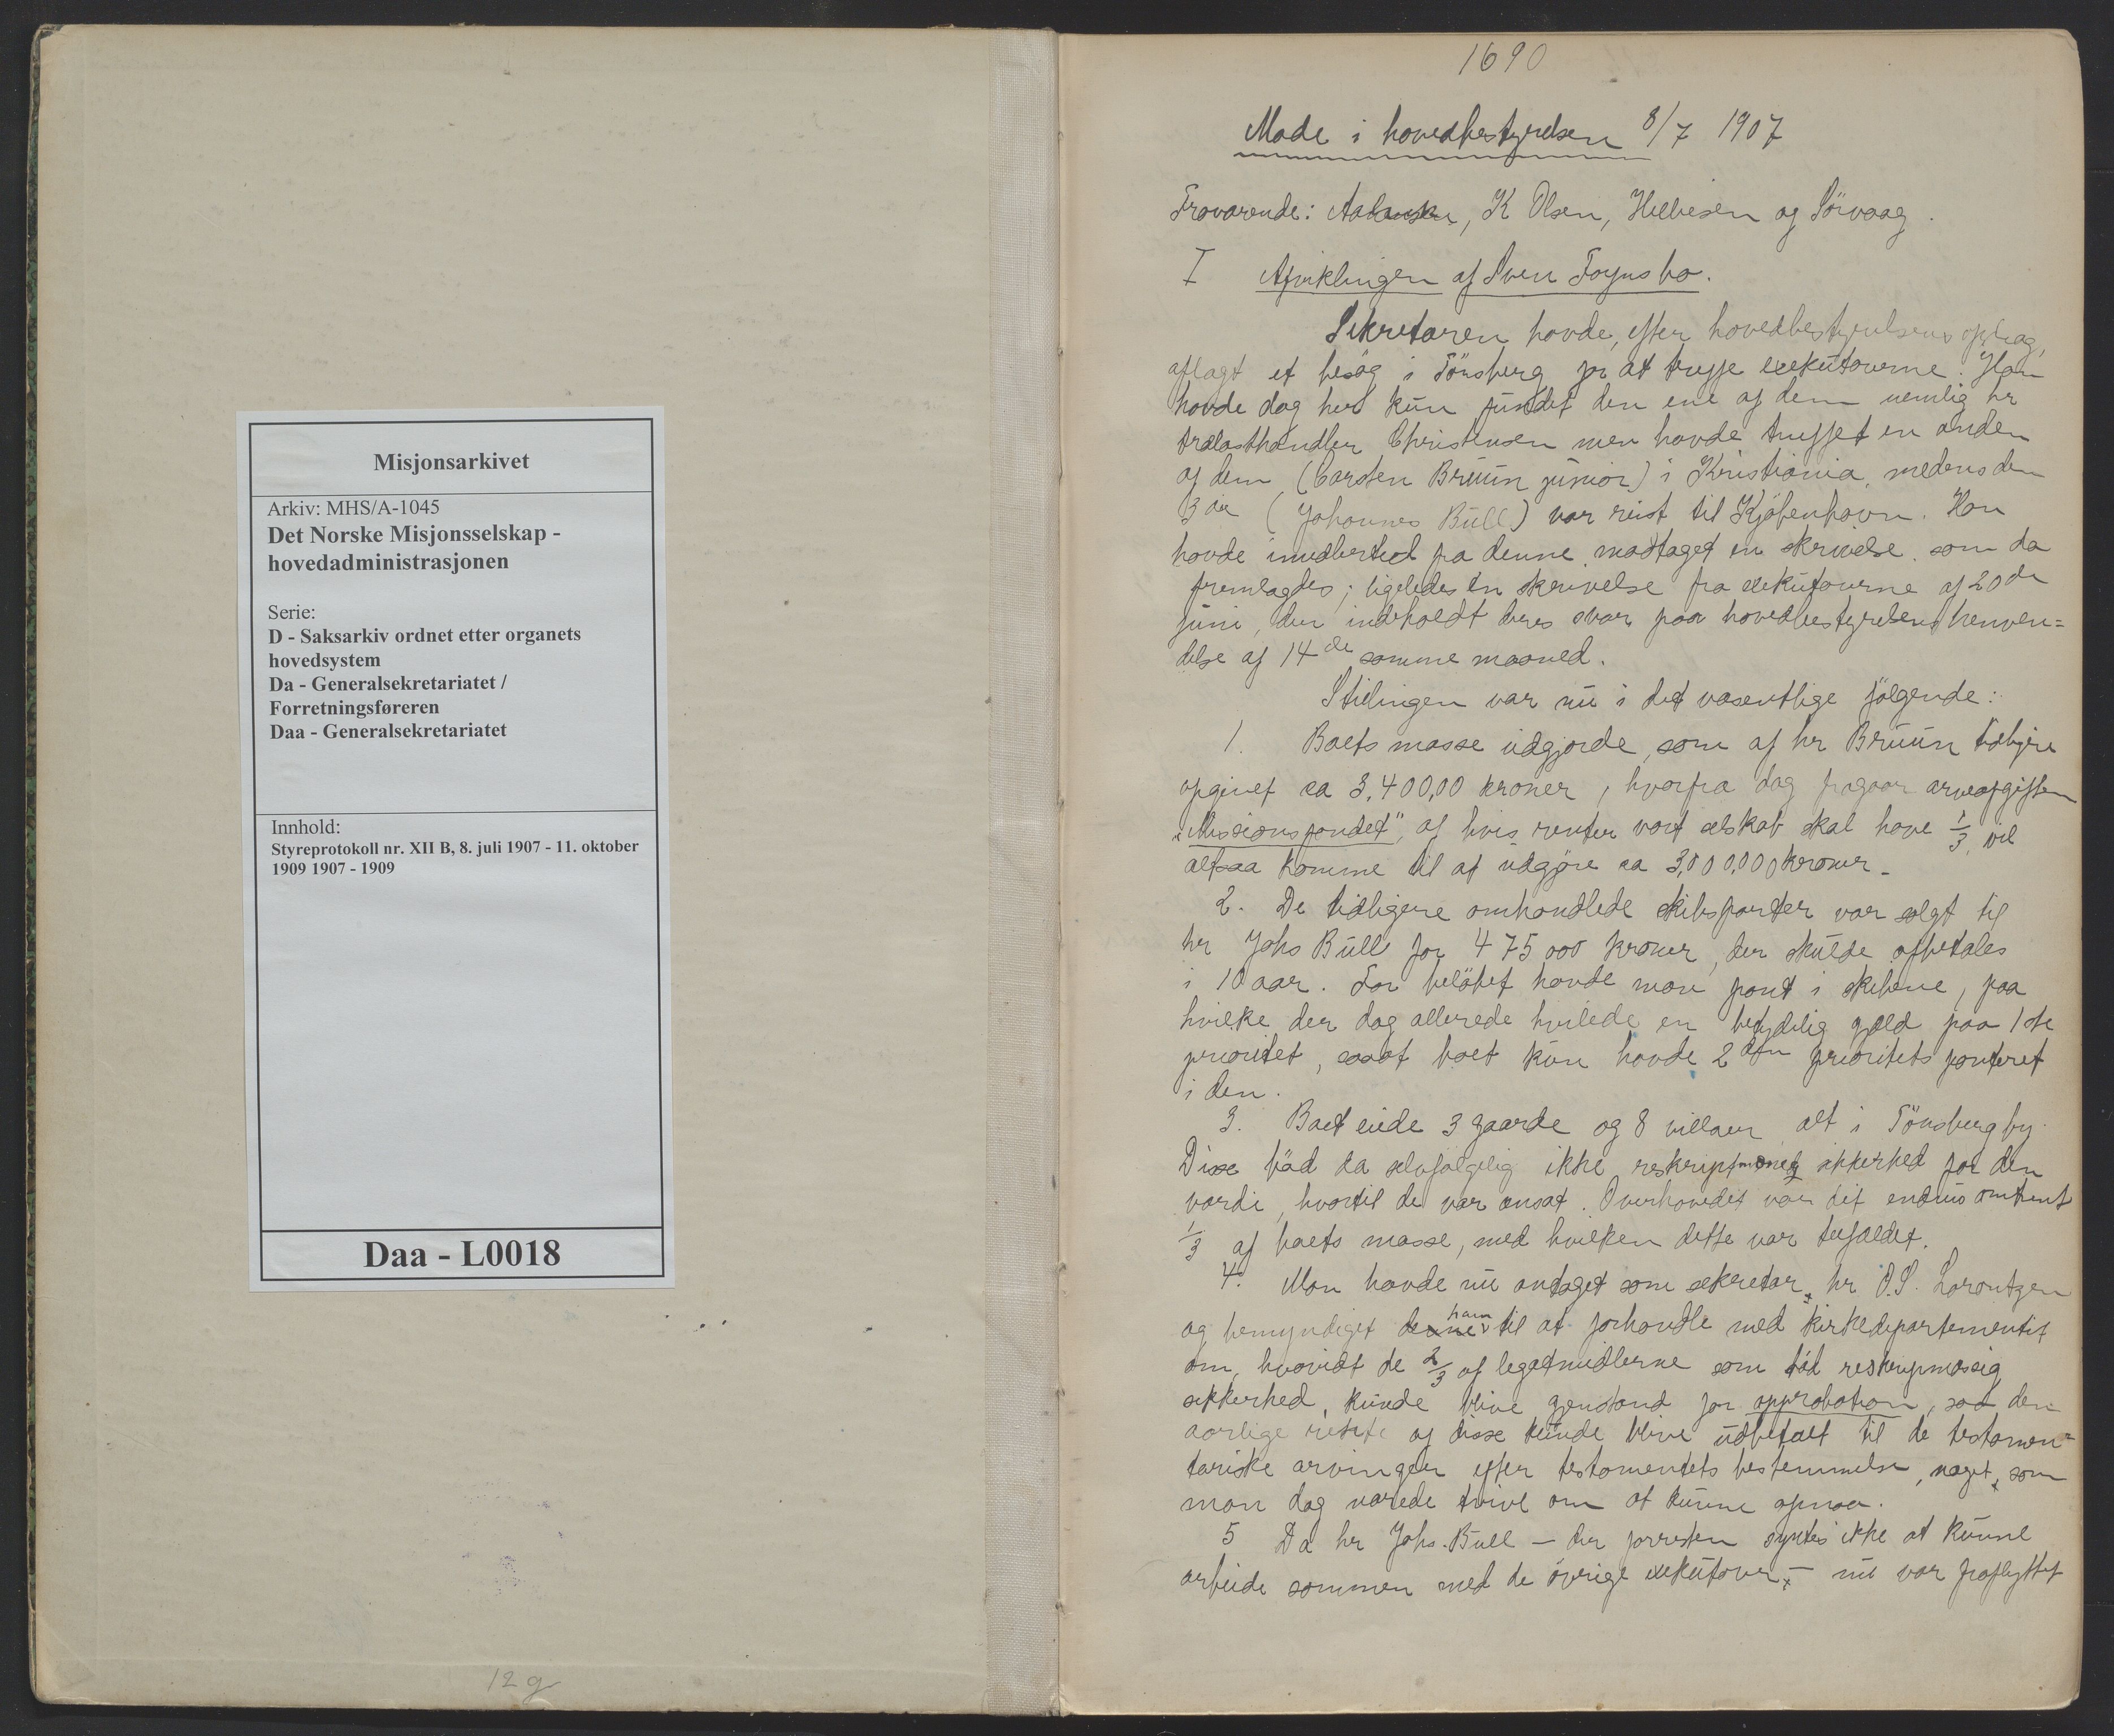 Misjonsarkivet
Arkiv: MHS/A-1045
Det Norske Misjonsselskap -
hovedadministrasjonen
Serie:
D - Saksarkiv ordnet etter organets
hovedsystem
Da - Generalsekretariatet /
Forretningsføreren
Daa - Generalsekretariatet
Innhold:
Styreprotokoll nr. XII B, 8. juli 1907 - 11. oktober
1909 1907 - 1909
Daa - L0018
12 g
1690
Møde i hovedbestyrelsen 8/7 1907
Fraværende: K Olsen, Hellesen og Sörvaag.
I Afviklingen af Sven Foyns bo.
Sekretæren havde, efter hovedbestyrelsens opdrag,
aflagt et besøg i Tönsberg for at træffe exekutorerne. Han
havde dog her kun fundet den ene af dem nemlig hr
trælasthandler Christensen men havde truffet en anden
af dem (Carsten Bruun junior) i Kristiania, medens den
3die (Johannes Bull) var reist til Kjöbenhavn. Han
havde imidlertid fra denne modtaget en skrivelse som da
fremlagdes; ligeledes en skrivelse fra exekutorerne af 20de
juni, der indeholdt deres svar paa hovedbestyrelsens henven=
delse af 14de samme maaned.
Stillingen var nu i det væsentlige følgende:
1. Boets masse udgjorde, som af hr Bruun tidligere
opgivet ca 3,400,00 kroner, hvorfra dog fragaar arveafgiften
"Missionsfondet", af hvis renter vort selskab skal have 1/3, vil
altsaa komme til at udgjøre ca 3,000,000 kroner.
2. De tidligere omhandlede skibsparter var solgt til
hr Johs Bull for 475 000 kroner, der skulde afbetales
i 10 aar. For beløbet havde man pant i skibene, paa
hvilke der dog allerede hvilede en betydelig gjæld paa 1ste
prioritet, saaat boet kun havde 2den prioritets panteret
i den.
3. Boet eiede 3 gaarde og 8 villaer, alt i Tönsberg by.
Disse böd da selvfølgelig ikke reskriptmæssig sikkerhed for den
værdi, hvortil de var ansat. Overhovedet var det endnu omtrent
1/3 af boets masse, med hvilken dette var tilfældet.
4. Man havde nu antaget som sekretær hr O.S. Lorentzen
og bemyndiget denne ham til at forhandle med kirkedepartementet
om, hvorvidt de 2/3 af legatmidlerne som böd reskripmæssig
sikkerhed, kunde blive gjenstand for approbation, saa den
aarlige rente af disse kunde blive udbetalt til de testamen=
tariske arvinger efter testamentets bestemmelse, noget, som
man dog nærede tvivl om at kunne opnaa.
5 Da hr Johs. Bull – der forresten syntes ikke at kunne
arbeide sammen med de övrige exekutorer – nu var fraflyttet